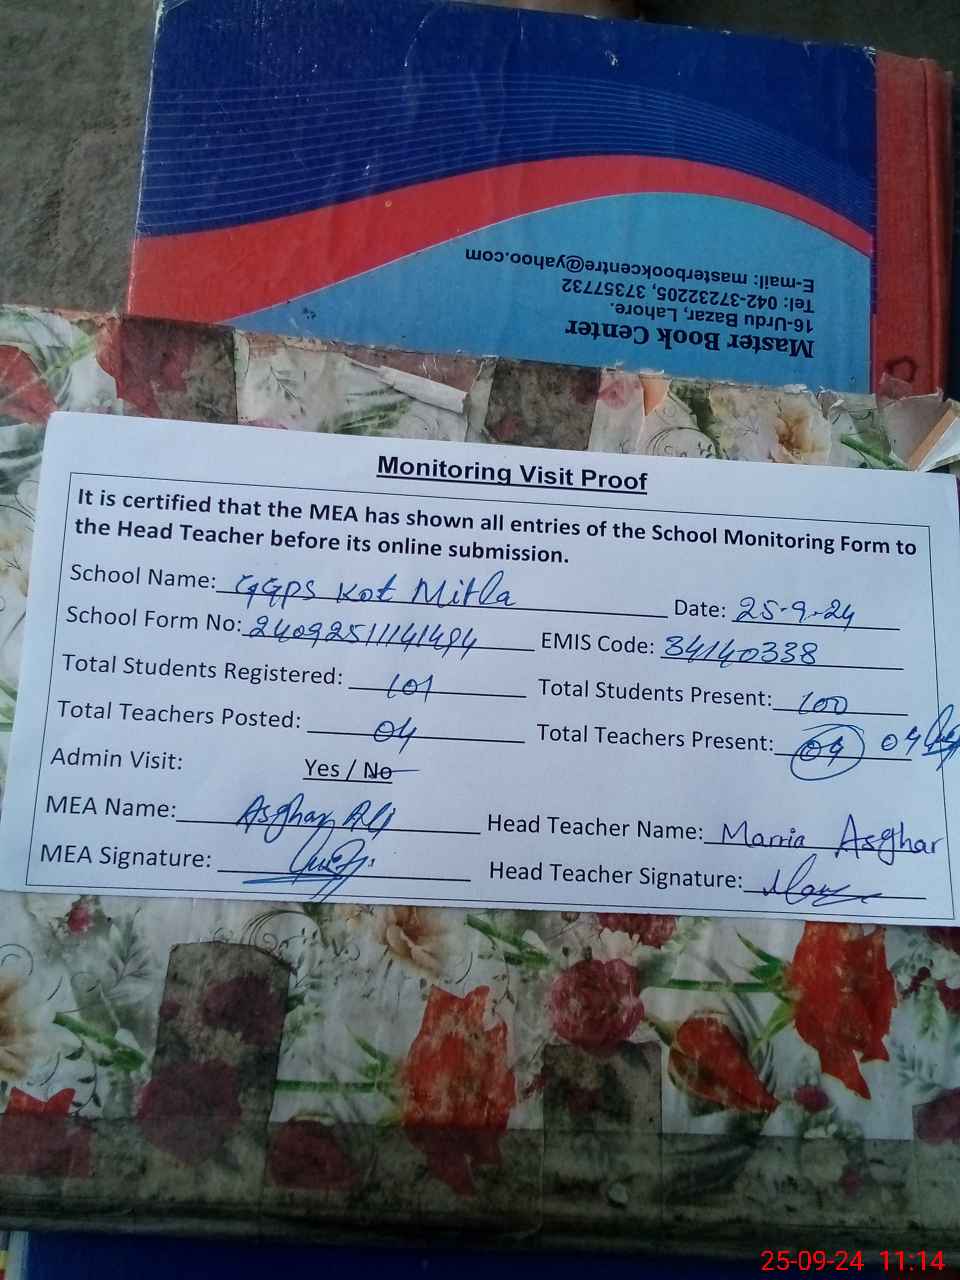 Master Book Center
16-Urdu Bazar, Lahore.
Tel: 042-37232205, 37357732
E-mail: masterbookcentre@yahoo.com
Monitoring Visit Proof
It is certified that the MEA has shown all entries of the School Monitoring Form to
the Head Teacher before its online submission.
School Name: GGPS Kot Mitla Date: 25-9-24
School Form No: EMIS Code: 34140338
Total Students Registered: 101 Total Students Present: 100
Total Teachers Posted: 04 Total Teachers Present: 04 04
Admin Visit: Yes / No
MEA Name: Asghar Ali Head Teacher Name: Marria Asghar
MEA Signature: Head Teacher Signature:
25-09-24 11:14